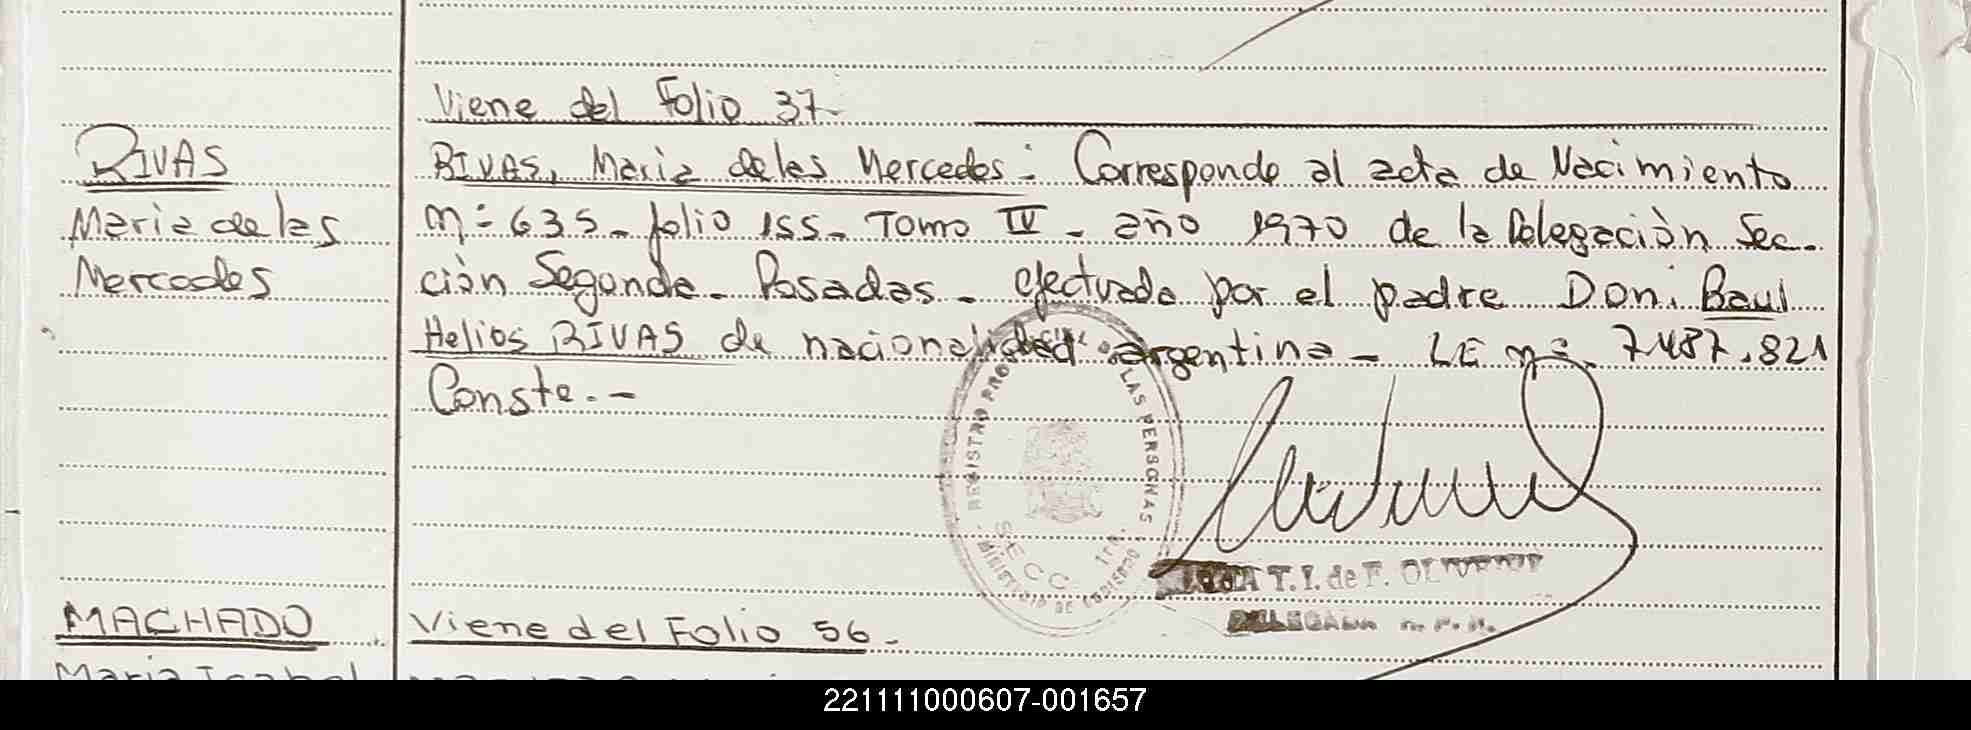 Viene del Folio 37-
RIVAS
Maria de las
Mercedes
RIVAS, Maria de las Mercedes: Corresponde al acta de Nacimiento
nº 635- folio 155- Tomo IV - año 1970 de la Delegación Sec-
ción Segunda- Posadas- efectuada por el padre Don: Raul
Helios RIVAS de nacionalidad argentina- LE nº 7487.821
Conste.-
REGISTRO PRO LAS PERSONAS
SECC 1ra.
MINISTERIO DE GOBIERNO
T. I. de F.
DELEGADA R. P. P.
MACHADO
Maria Isabel
Viene del Folio 56-
221111000607-001657